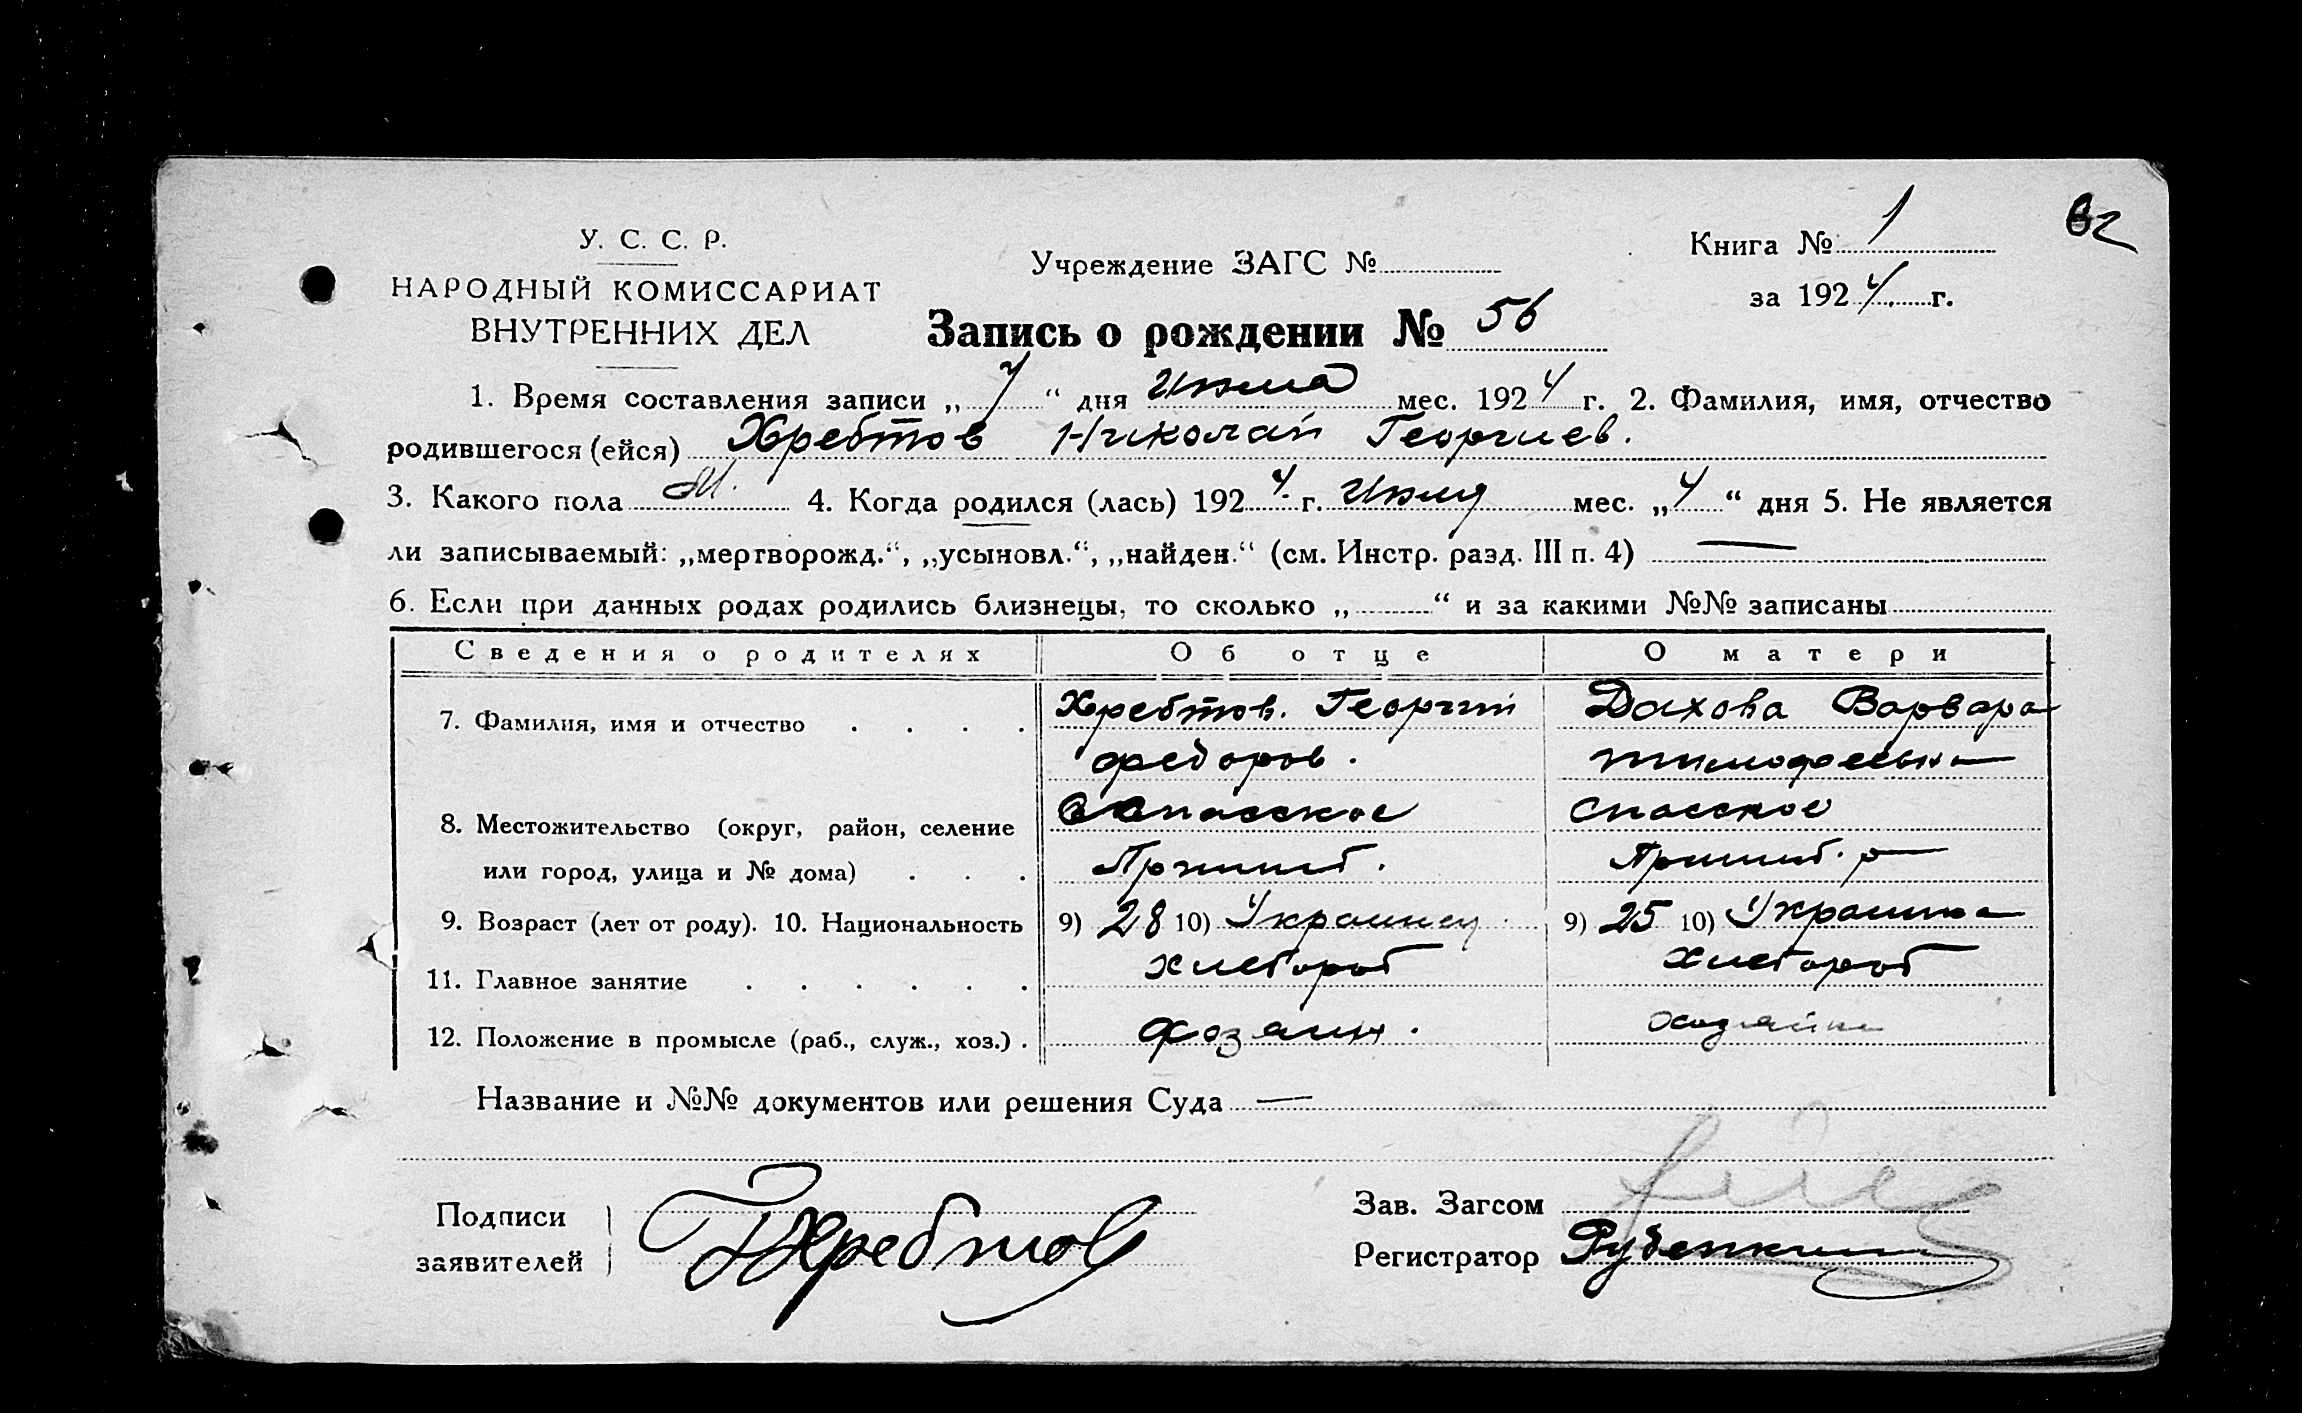 62
У. С. С. Р.
НАРОДНЫЙ КОМИССАРИАТ
ВНУТРЕННИХ ДЕЛ
Учреждение ЗАГС №
Книга № 1
за 1924 г.
Запись о рождении № 56
1. Время составления записи „7“ дня Июля мес. 1924 г. 2. Фамилия, имя, отчество
родившегося (ейся) Хребтов Николай Георгиев.
3. Какого пола М. 4. Когда родился (лась) 1924 г. Июля мес. „4“ дня 5. Не является
ли записываемый: „мертворожд.“, „усыновл.“, „найден.“ (см. Инстр. разд. III п. 4) —
6. Если при данных родах родились близнецы, то сколько „ “ и за какими №№ записаны
Сведения о родителях Об отце О матери
7. Фамилия, имя и отчество Хребтов. Георгий Дахова Варвара
федоров. тимофеевна
8. Местожительство (округ, район, селение Спасское Спасское
или город, улица и № дома)
9. Возраст (лет от роду). 10. Национальность 9) 28 10) Украинец 9) 25 10) Украинка
11. Главное занятие хлебороб хлебороб
12. Положение в промысле (раб., служ., хоз.) хозяин. хозяйка
Название и №№ документов или решения Суда —
Подписи
заявителей Хребтов
Зав. Загсом
Регистратор